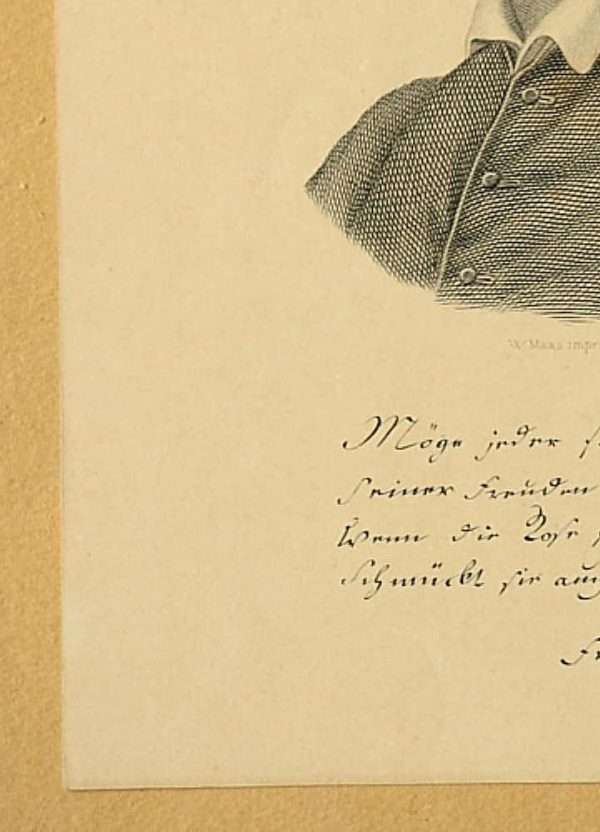 W. Maas impr
Möge jeder
Seiner Freuden
Wenn die Rose
Schmückt sie auch
Fr